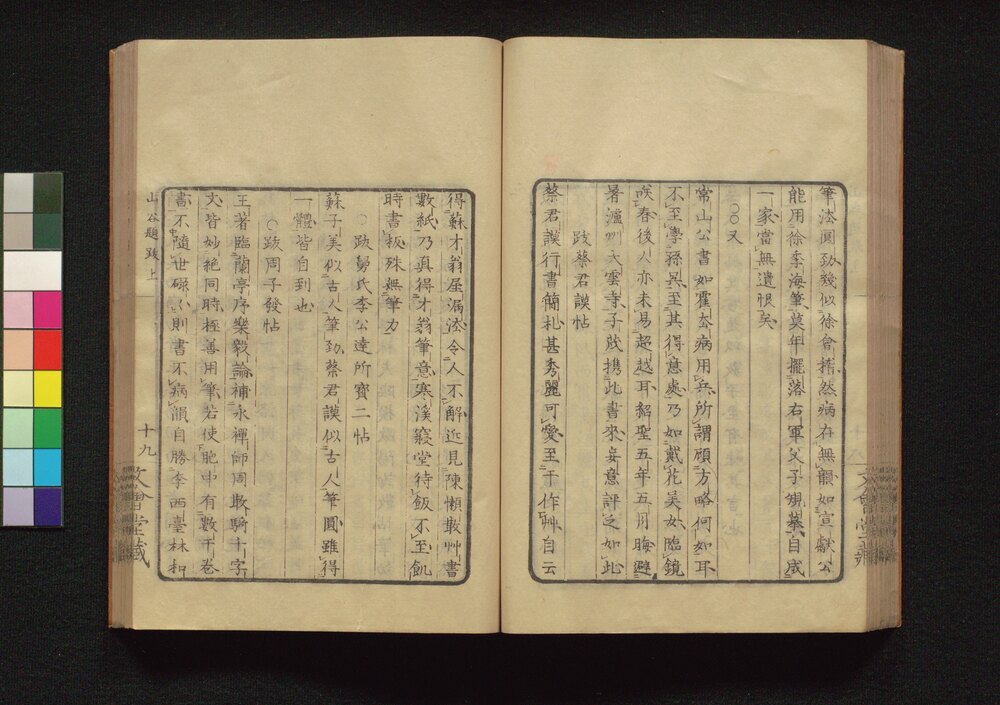 筆法圓勁幾似徐會稽然病在無韻如宣獻公
能用徐季海筆莫年擺落右軍父子規摹自成
一家當無遺恨矣
○○又
常山公書如霍去病用兵所謂顧方略何如耳
不至學孫吳至其得意處乃如戴花美女臨鏡
咲春後人亦未易超越耳紹聖五年五月晦避
暑瀘州大雲寺子茂攜此書來妄意評之如此
跋蔡君謨帖
蔡君謨行書簡札甚秀麗可愛至于作艸自云
得蘇才翁屋漏法令人不解近見陳懶散艸書
數紙乃真得才翁筆意寒溪寢堂待飯不至飢
時書板殊無筆力
○跋舅氏李公達所寶二帖
蘇子美似古人筆勁蔡君謨似古人筆圓雖得
一體皆自到也
○跋周子發帖
王著臨蘭亭序樂毅論補永禪師周散騎千字
文皆妙絕同時極善用筆若使胸中有數千卷
書不隨世碌〻則書不病韻自勝李西臺林和
山谷題跋上
十九
文會堂藏
文會堂藏